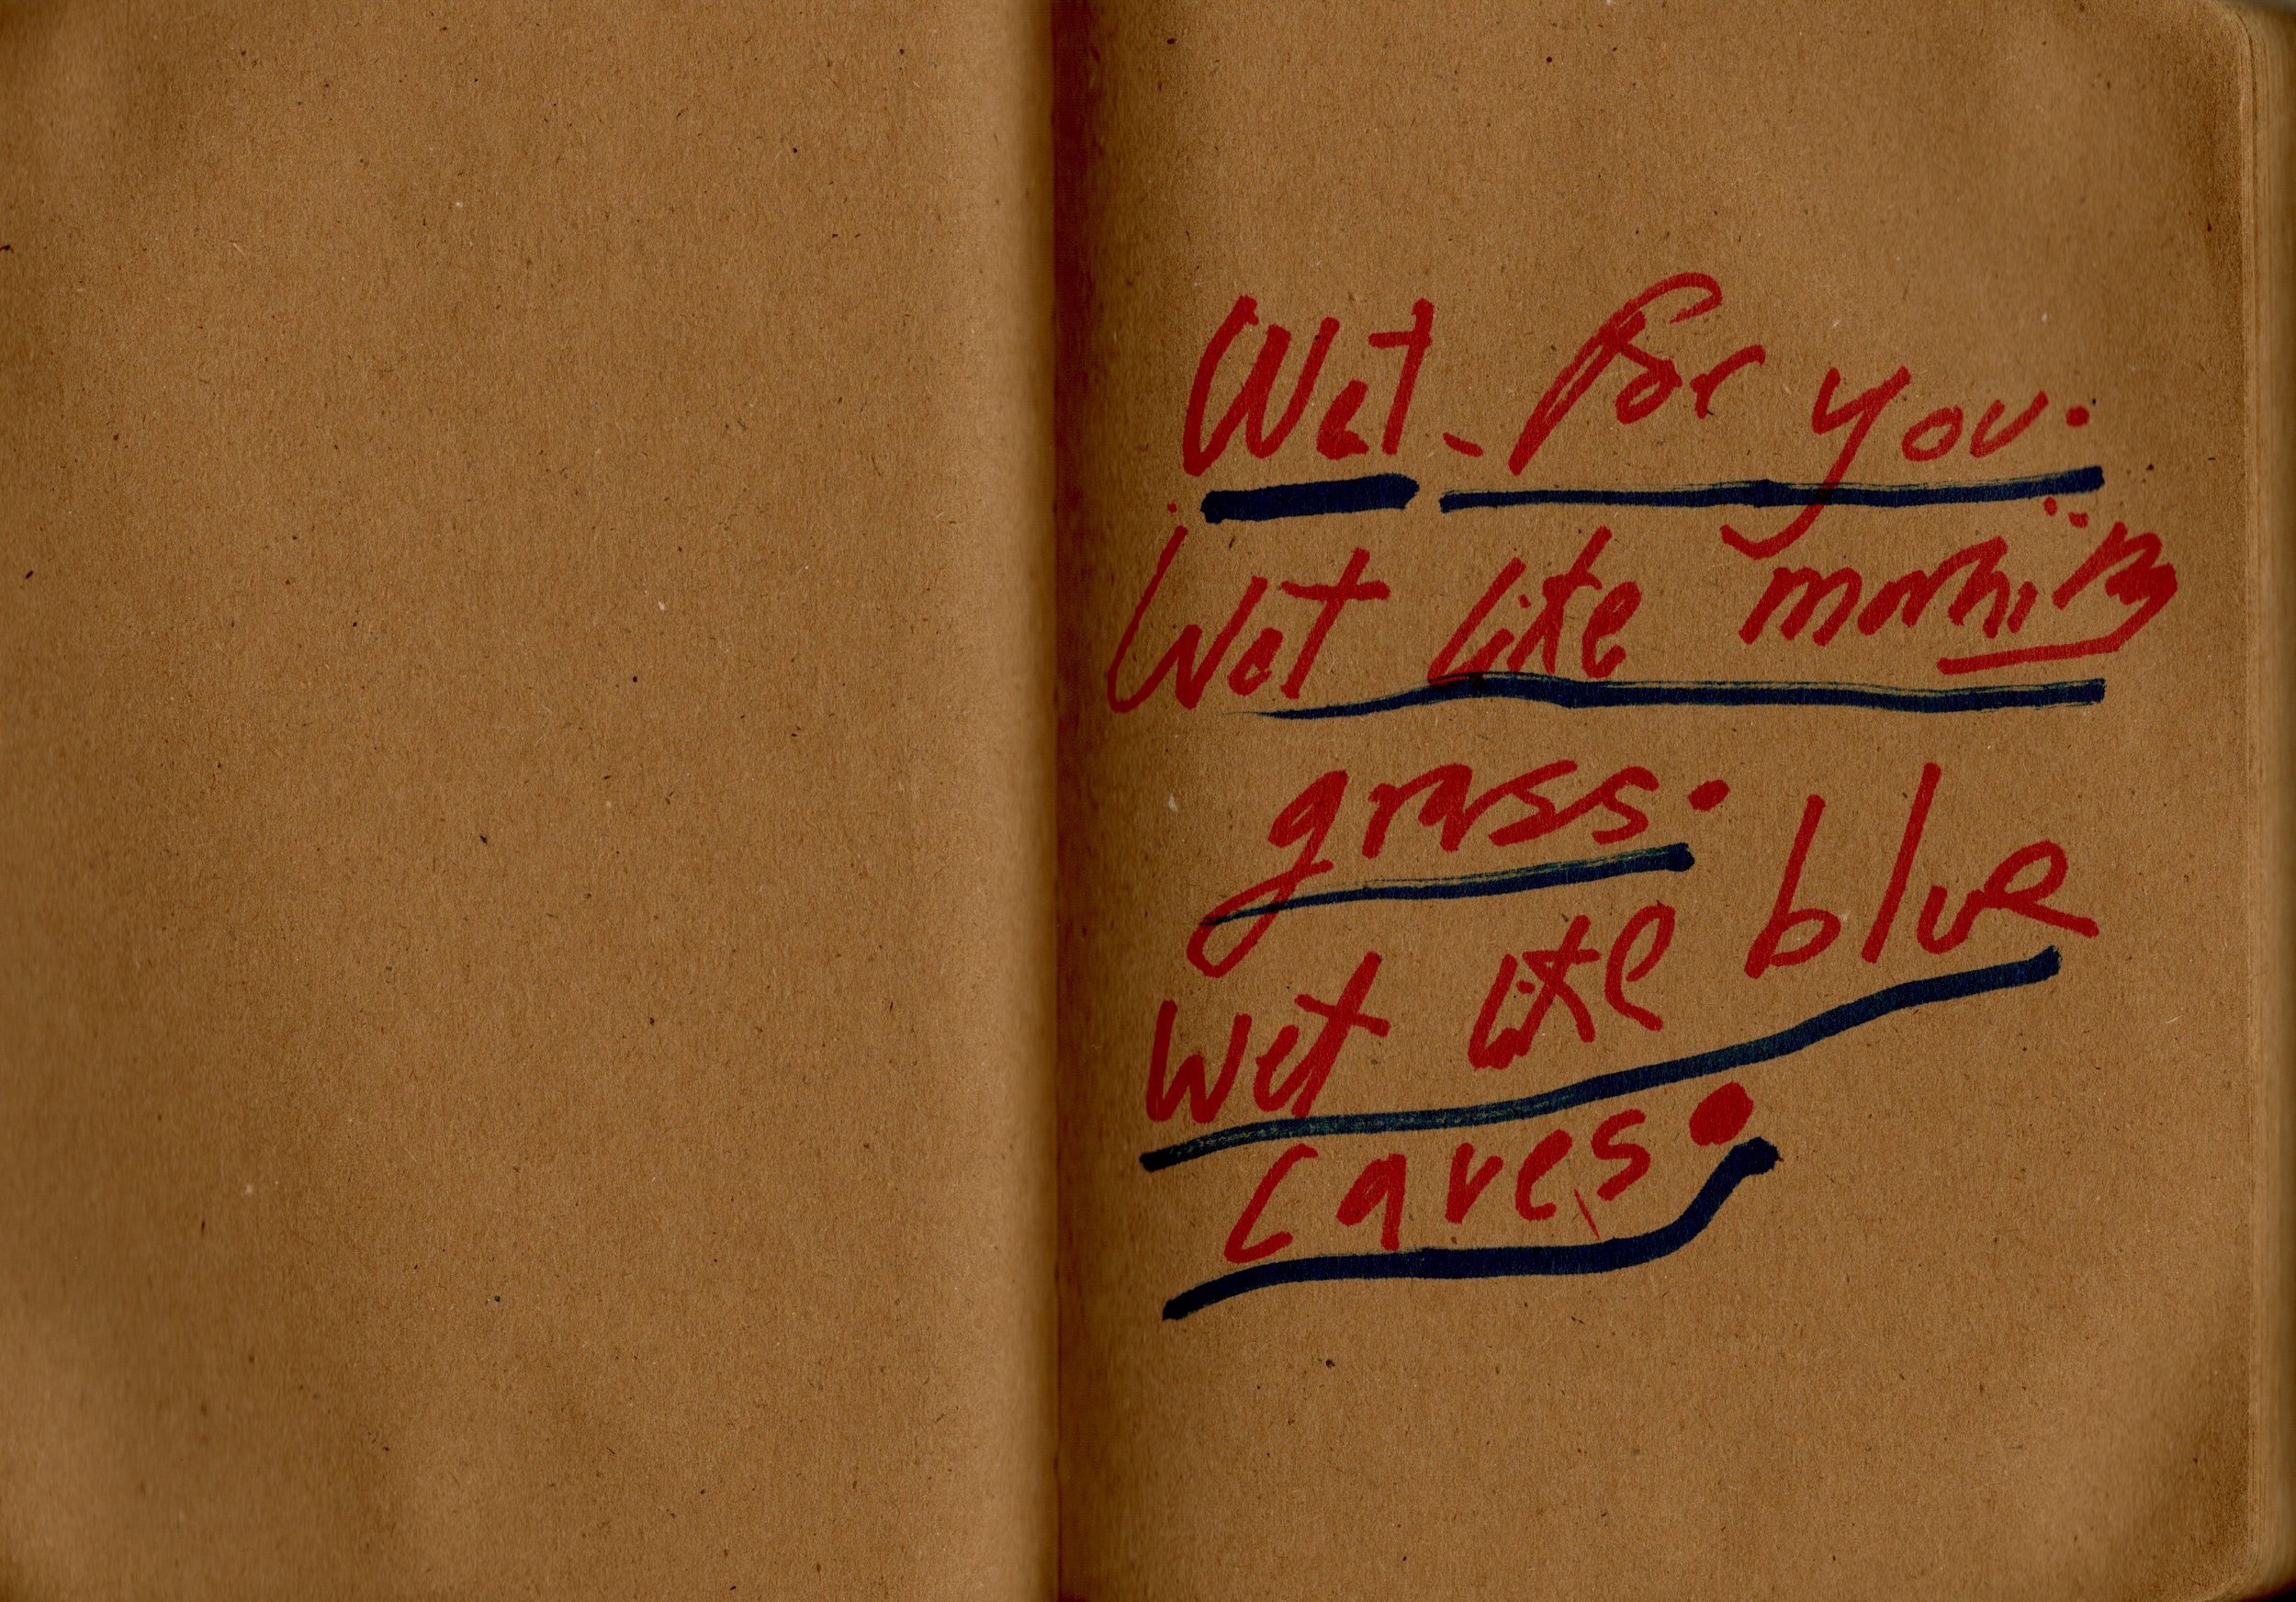 Wet - for you.
Wet like morning
grass.
Wet like blue
caves.